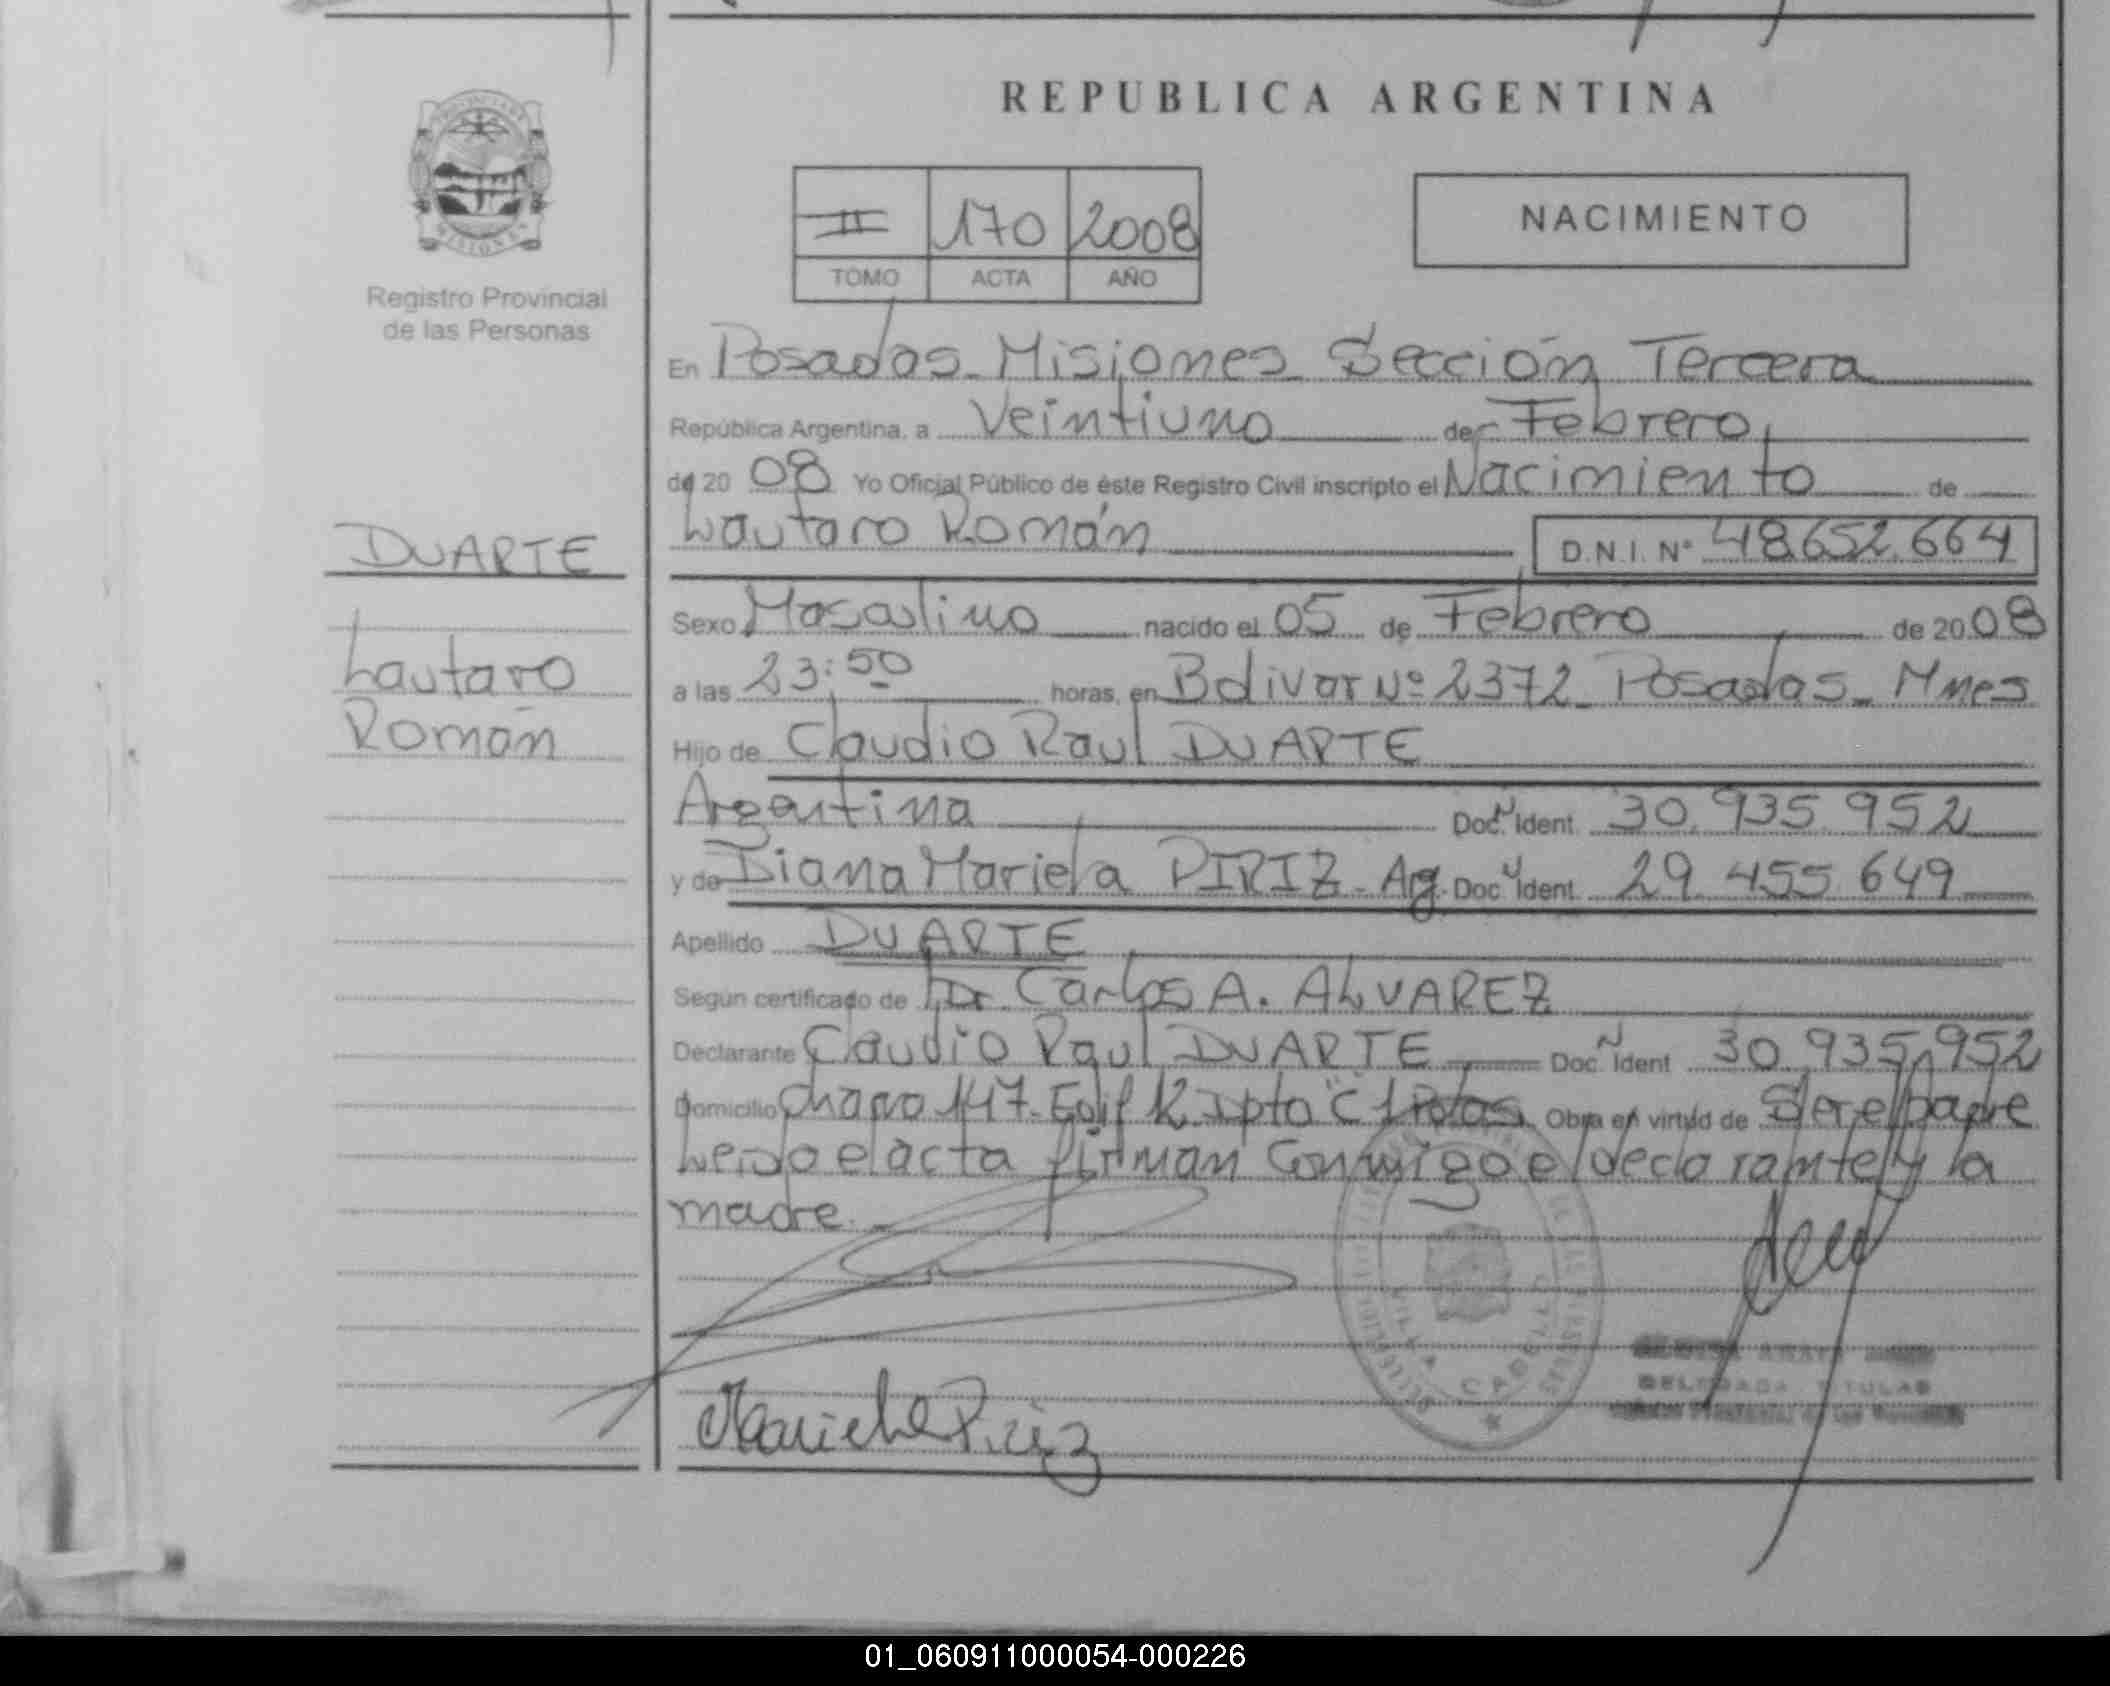 REPUBLICA ARGENTINA
PROVINCIA DE
MISIONES
Registro Provincial
de las Personas
II 170 2008
TOMO ACTA AÑO
NACIMIENTO
En Posadas - Misiones Sección Tercera
República Argentina, a Veintiuno de Febrero
de 20 08 Yo Oficial Público de éste Registro Civil inscripto el Nacimiento de
Lautaro Román D.N.I. Nº 48.652.664
DUARTE
Lautaro
Román
Sexo Masculino nacido el 05 de Febrero de 20 08
a las 23:50 horas, en Bolivar Nº 2372 - Posadas - Mnes
Hijo de Claudio Raul DUARTE
Argentina Doc. N Ident 30.935.952
y de Diana Mariela PIRIZ - Arg. Doc N Ident 29.455.649
Apellido DUARTE
Según certificado de Dr. Carlos A. ALVAREZ
Declarante Claudio Raul DUARTE Doc. N Ident 30.935.952
Domicilio 147 - Edif K Dpto "C" Obra en virtud de Ser el padre
Leido el acta firman Conmigo el declarante y la
madre.
VILLA CABELLO
Mariela Piriz
DELEGADA TITULAR
01_060911000054-000226